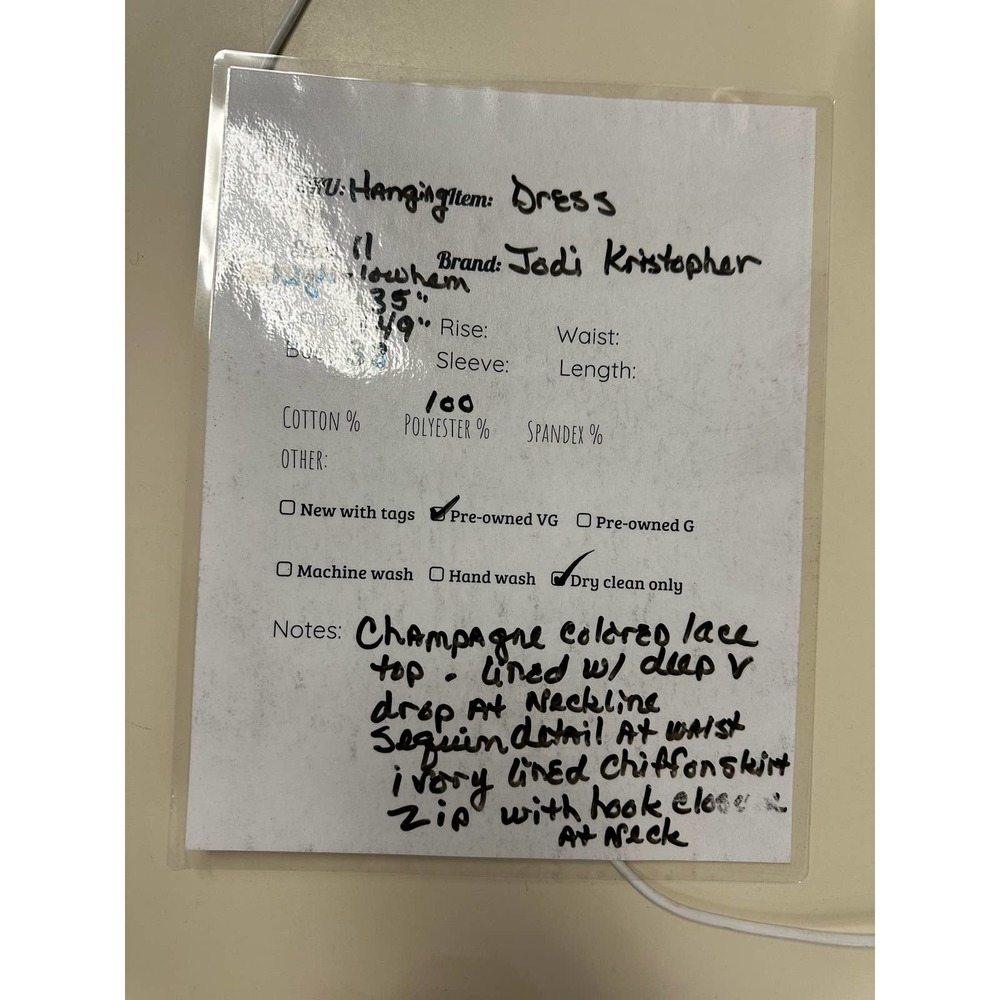 SKU: Hanging Item: Dress
11 Brand: Jodi Kristopher
low hem
35"
49" Rise: Waist:
Sleeve: Length:
100
COTTON % POLYESTER % SPANDEX %
OTHER:
New with tags Pre-owned VG Pre-owned G
Machine wash Hand wash Dry clean only
Notes: Champagne colored lace
top. lined w/ deep V
drop At Neckline
Sequin detail At waist
ivory lined chiffon skirt
Zip with hook closure
At Neck